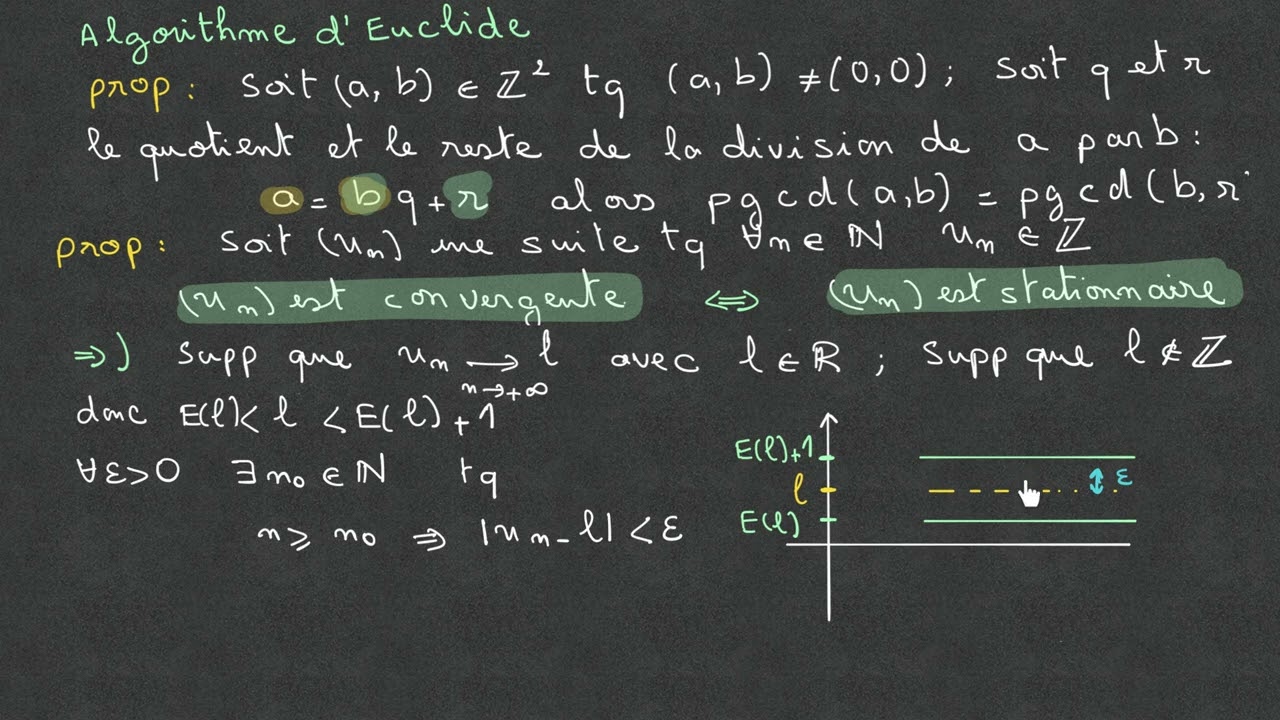 Algorithme d'Euclide
prop : soit (a, b) ∈ ℤ² tq (a, b) ≠ (0, 0) ; soit q et r
le quotient et le reste de la division de a par b :
a = b q + r alors pgcd(a,b) = pgcd(b, r
prop : soit (un) une suite tq ∀n ∈ ℕ un ∈ ℤ
(un) est convergente ⟺ (un) est stationnaire
⇒) supp que un ⟶ l avec l ∈ ℝ ; supp que l ∉ ℤ
n→+∞
donc E(l) < l < E(l) + 1
E(l)+1
∀ε>0 ∃ n0 ∈ ℕ tq
l ε
E(l)
n ⩾ n0 ⇒ |un - l| < ε